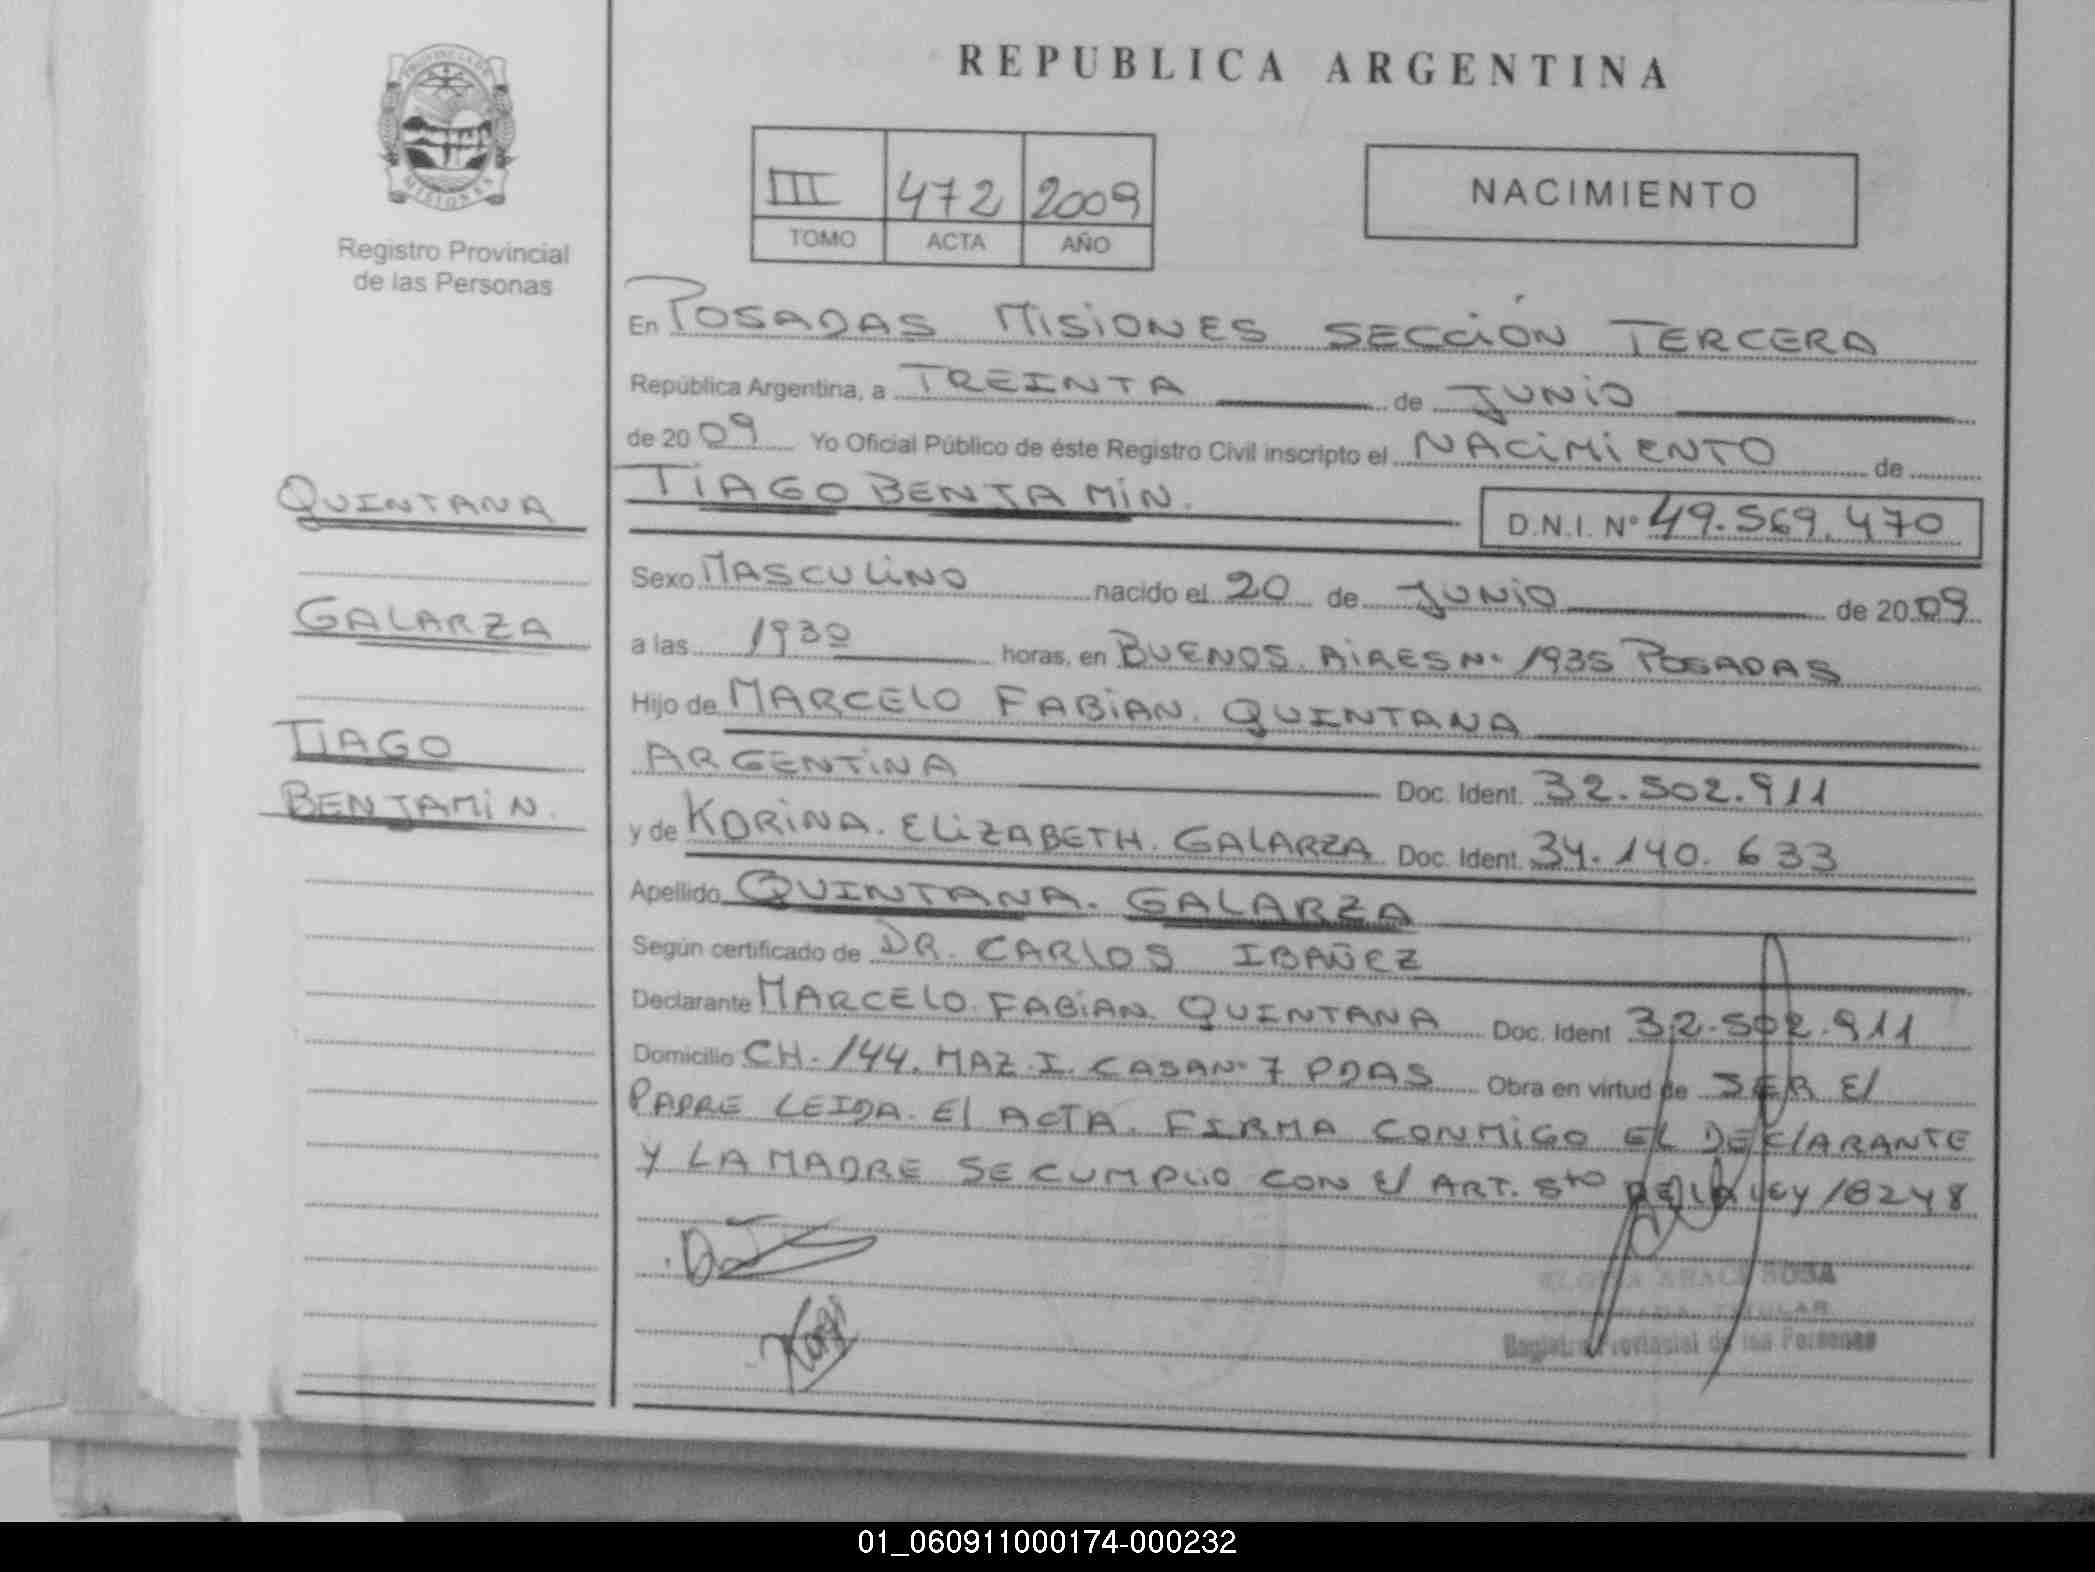 REPUBLICA ARGENTINA
PROVINCIA DE
MISIONES
Registro Provincial
de las Personas
III 472 2009
TOMO ACTA AÑO
NACIMIENTO
En POSADAS MISIONES SECCIÓN TERCERA
República Argentina, a TREINTA de JUNIO
de 2009 Yo Oficial Público de éste Registro Civil inscripto el NACIMIENTO de
TIAGO BENJAMIN.
D.N.I. Nº 49.569.470
QUINTANA
GALARZA
TIAGO
BENJAMIN.
Sexo MASCULINO nacido el 20 de JUNIO de 2009
a las 1930 horas, en BUENOS AIRES Nº 1935 POSADAS
Hijo de MARCELO FABIAN QUINTANA
ARGENTINA Doc. Ident. 32.502.911
y de KORINA. ELIZABETH. GALARZA Doc. Ident. 34.140.633
Apellido QUINTANA. GALARZA
Según certificado de DR. CARLOS IBAÑEZ
Declarante MARCELO FABIAN QUINTANA Doc. Ident 32.502.911
Domicilio CH. 144. MAZ. I. CASA Nº 7 PDAS Obra en virtud de SER El
PADRE LEIDA. El ACTA. FIRMA CONMIGO EL DEClARANTE
Y LA MADRE SE CUMPLIO CON El ART. 5to DE LA LEY 18248
SOSA
TITULAR
Registro Provincial de las Personas
01_060911000174-000232